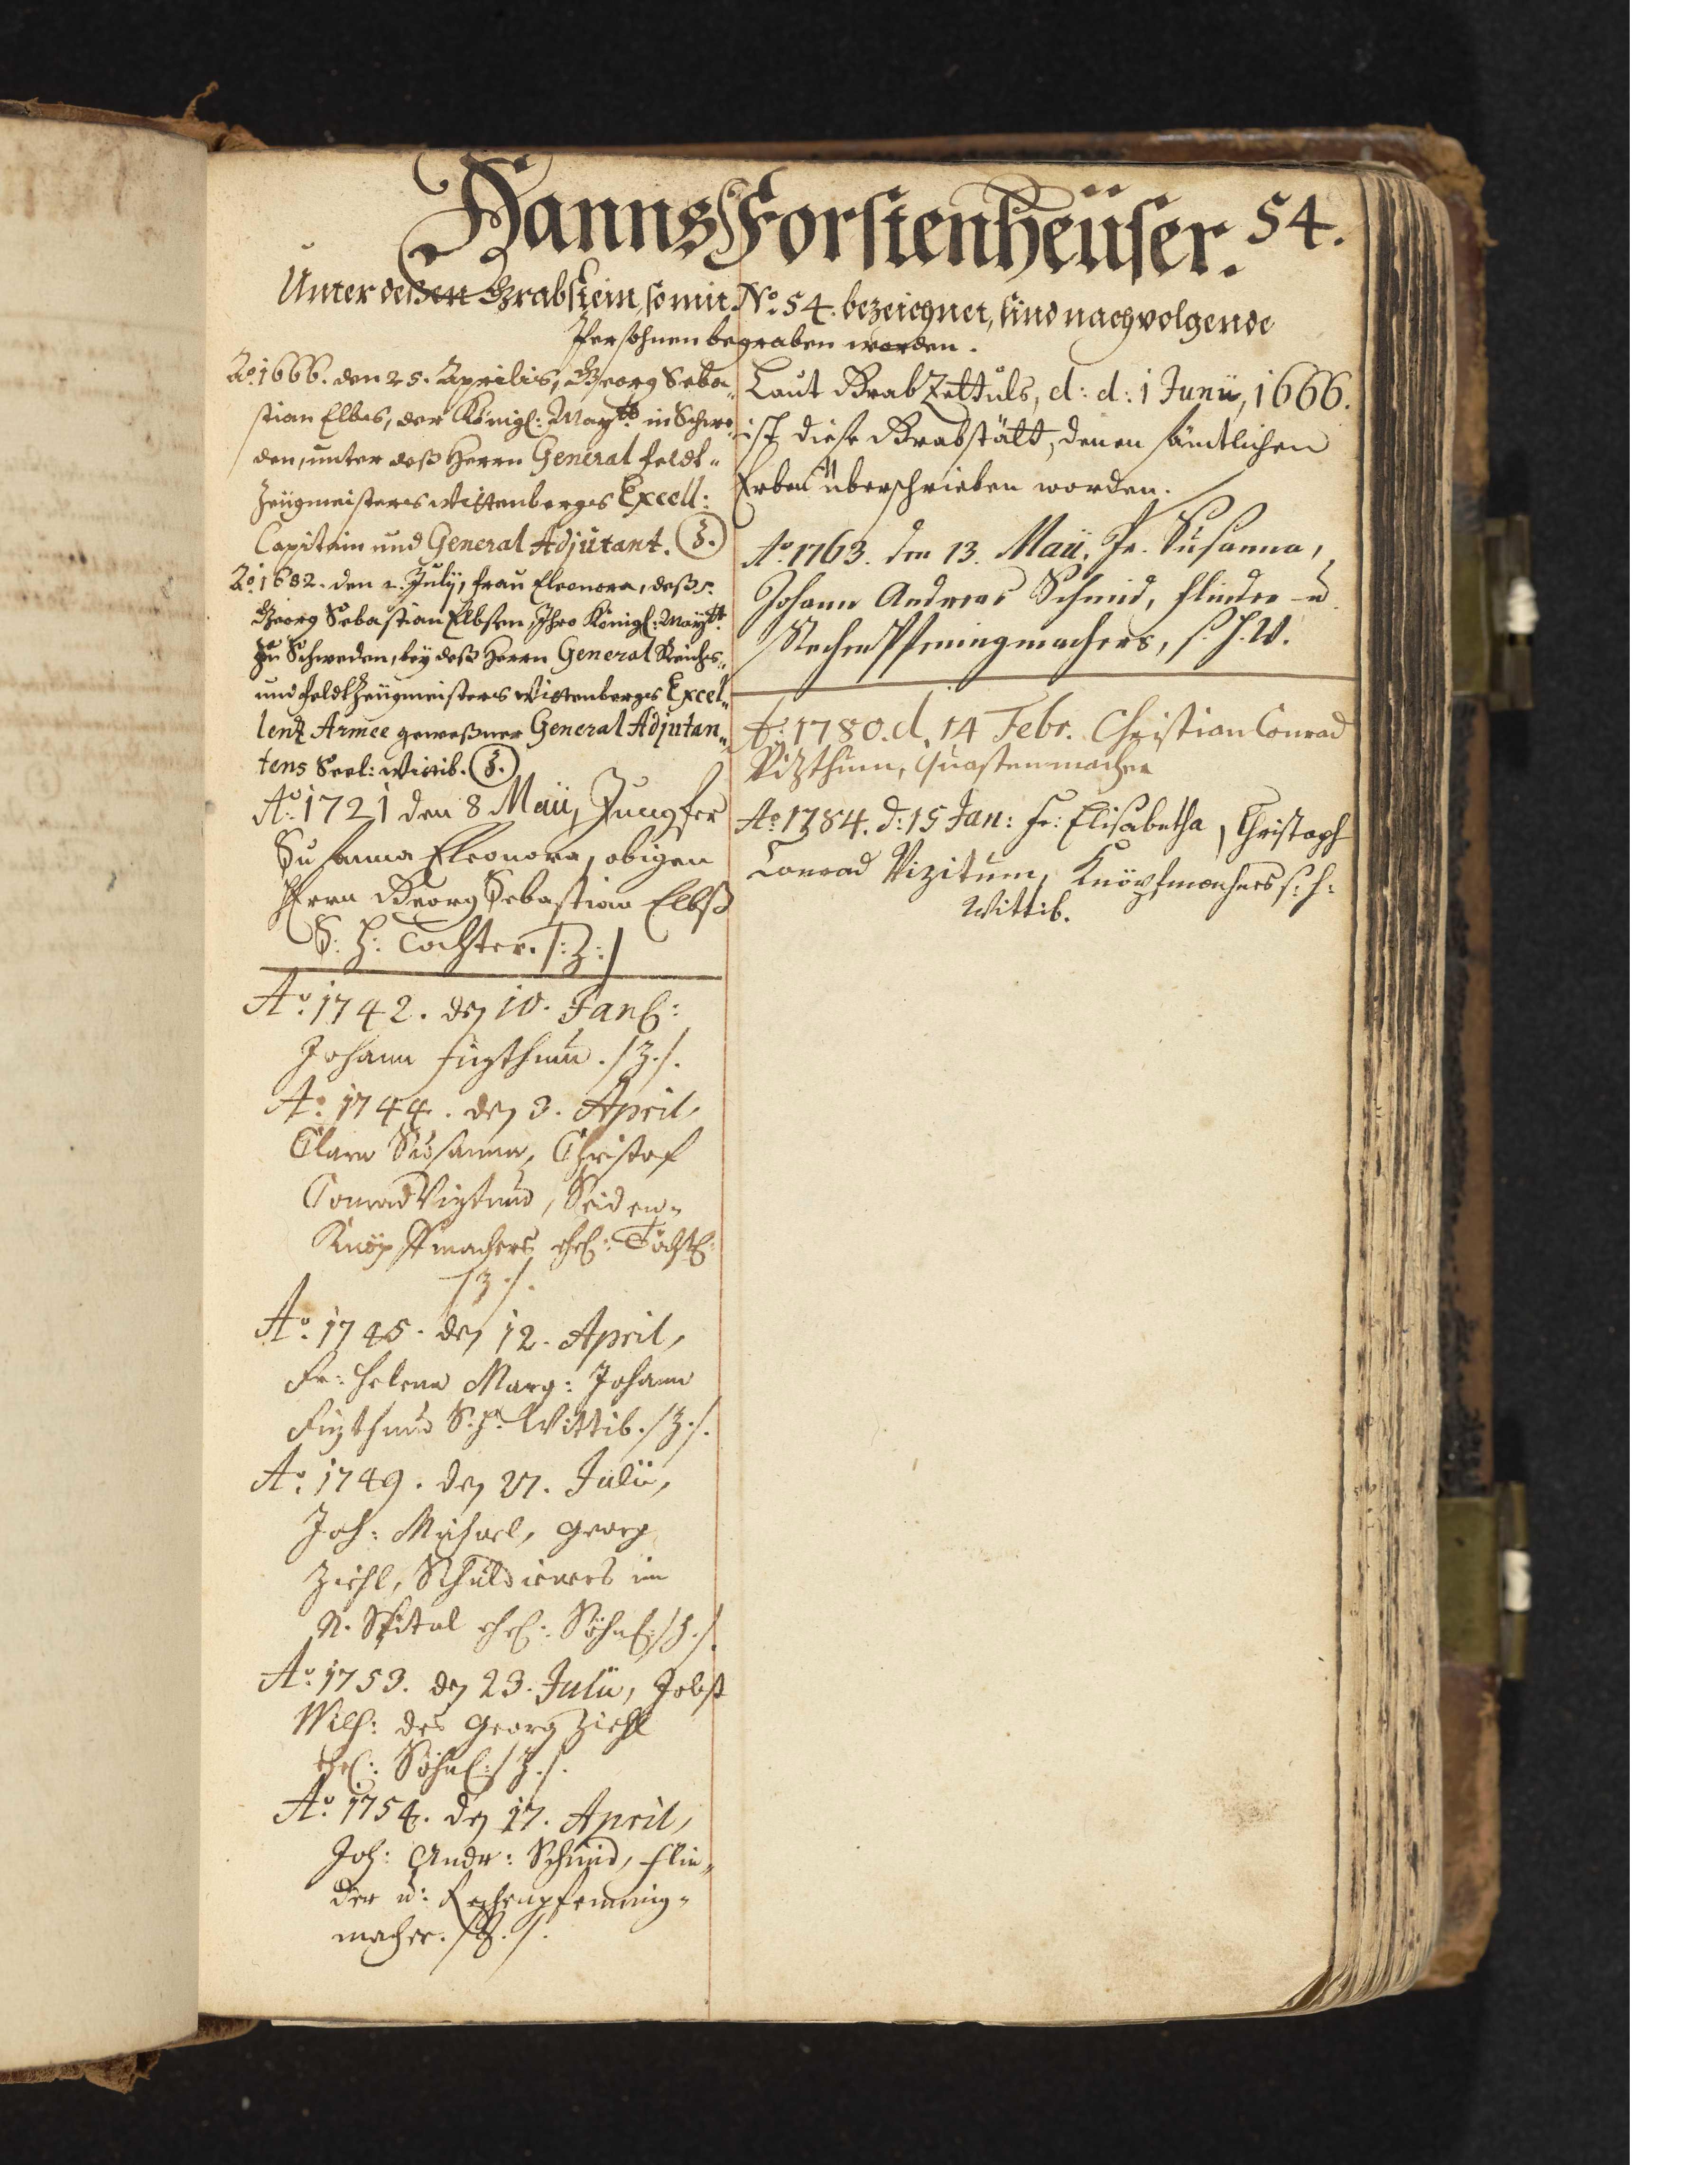 Hanns Forstenheüser. 54.
Unter deßen Grabstein, so mit No. 54. bezeichnet, sind nachvolgende
Persohnen begraben worden.
Ao. 1666. den 25. Aprilis, Georg Seba„
stian Elbes, der Königl: Maytt. in Schwe„
den, unter deß Herrn General Feldt„
Zeugmeisters Wittenbergs Excell:
Capitain und General Adjutant. (3.)
Ao. 1682. den 2. July, Frau Eleonora, deß
Georg Sebastian Elbsen Ihro Königl: Maytt.
zu Schweden, bey deß Herrn General Reichs„
und Feldt Zeugmeisters Wittenbergs Excel„
lentz Armee geweßner General Adjutan„
tens Seel: Wittib. (3.)
Ao. 1721 den 8 Maii, Jungfer
Susanna Eleonora, obigen
Herrn Georg Sebastian Elbß
S: H: Tochter. /:3:/
Ao. 1742. den 10. Jan:
Johann Fizthum. /3./.
Ao. 1744. den 3. April,
Clara Susanna, Christof
Conrad Vizthum, Seiden„
Knöpffmachers ehel: Töchtl:
/3./.
Ao. 1745. den 12. April,
Fr: Helena Marg: Johann
Fizthum S. H. Wittib. /3./.
Ao. 1749. den 27. Julii,
Joh: Michael, Georg
Ziehl, Schuldieners im
N. Spital ehel: Söhnl: /3./.
Ao. 1753. den 23. Julii, Jobst
Wilh: des Georg Ziehl
ehel: Söhnl: /3./.
Ao. 1754. den 17. April,
Joh: Andr: Schmid, Flin„
der u: Rechenpfenning„
macher. /3./.
Laut Grab Zettuls, d: d: 1 Junii, 1666.
ist diese Grabstätt, denen sämtlichen
Erben überschrieben worden.
Ao. 1763. den 13. Maii. Fr. Susanna,
Johann Andreas Schmid, Flinder- u.
Rechenpfenningmachers, s. h. W.
Ao. 1780. d. 14 Febr. Christian Conrad
Vizthum, Quastenmacher
Ao. 1784. d: 15 Jan: Fr: Elisabetha, Christoph
Conrad Vizitum, Knöpfmachers s: h:
Wittib.